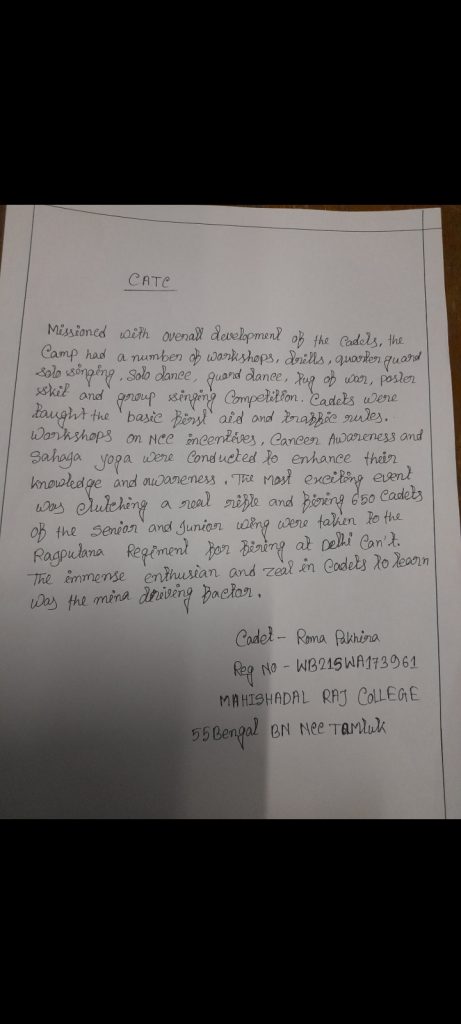 CATC
Missioned with overall development of the Cadets, the
Camp had a number of workshops, drills, quarter guard
solo singing, solo dance, guard dance, tug of war, poster
skit and group singing Competition. Cadets were
taught the basic first aid and traffic rules.
Workshops on NCC incentives, Cancer Awareness and
Sahaga yoga were conducted to enhance their
knowledge and awareness. The Most exciting event
was clutching a real rifle and firing 650 Cadets
of the senior and Junior wing were taken to the
Ragputana Regiment for firing at Delhi Can't.
The immense enthusian and zeal in Cadets to learn
was the mina driving factor.
Cadet - Roma Pakhira
Reg No - WB21SWA173961
MAHISHADAL RAJ COLLEGE
55 Bengal BN NCC TAMluk